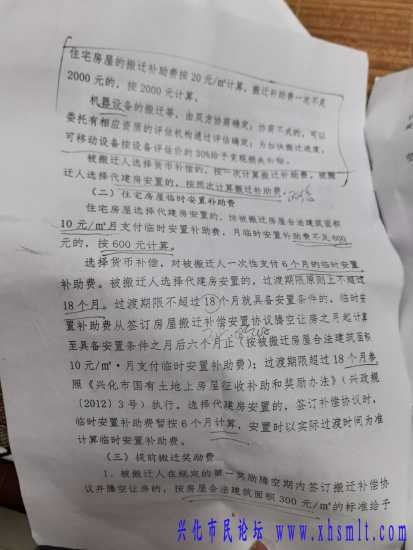 住宅房屋的搬迁补助费按20元/㎡计算，搬迁补助费一次不足
2000元的，按2000元计算。
机器设备的搬迁等，由双方协商确定；协商不成的，可以
委托有相应资质的评估机构通过评估确定；为加快搬迁进度，
可移动设备按设备评估价的30%给予变现损失补偿。
被搬迁人选择货币补偿的，按一次计算搬迁补助费，被搬
迁人选择代建房安置的，按照次计算搬迁补助费。
（二）住宅房屋临时安置补助费
住宅房屋选择代建房安置的，按被搬迁房屋合法建筑面积
10元/㎡月支付临时安置补助费，月临时安置补助费不足600
元的，按600元计算。
选择货币补偿，对被搬迁人一次性支付6个月的临时安置
补助费。被搬迁人选择代建房安置的，过渡期限原则上不超过
18个月。过渡期限不超过18个月就具备安置条件的，临时安
置补助费从签订房屋搬迁补偿安置协议腾空让房之月起计算
至具备安置条件之月后六个月止（按被搬迁房屋合法建筑面积
10元/㎡·月支付临时安置补助费）；过渡期限超过18个月参
照《兴化市国有土地上房屋征收补助和奖励办法》（兴政规
〔2012〕3号）执行。选择代建房安置的，签订补偿协议时，
临时安置补助费暂按6个月计算，安置时以实际过渡时间为准
计算临时安置补助费。
（三）提前搬迁奖励费
1．被搬迁人在规定的第一奖励腾空期内签订搬迁补偿协
议并腾空让房的，按房屋合法建筑面积300元/㎡的标准给予
兴化市民论坛 www.xhsmlt.com